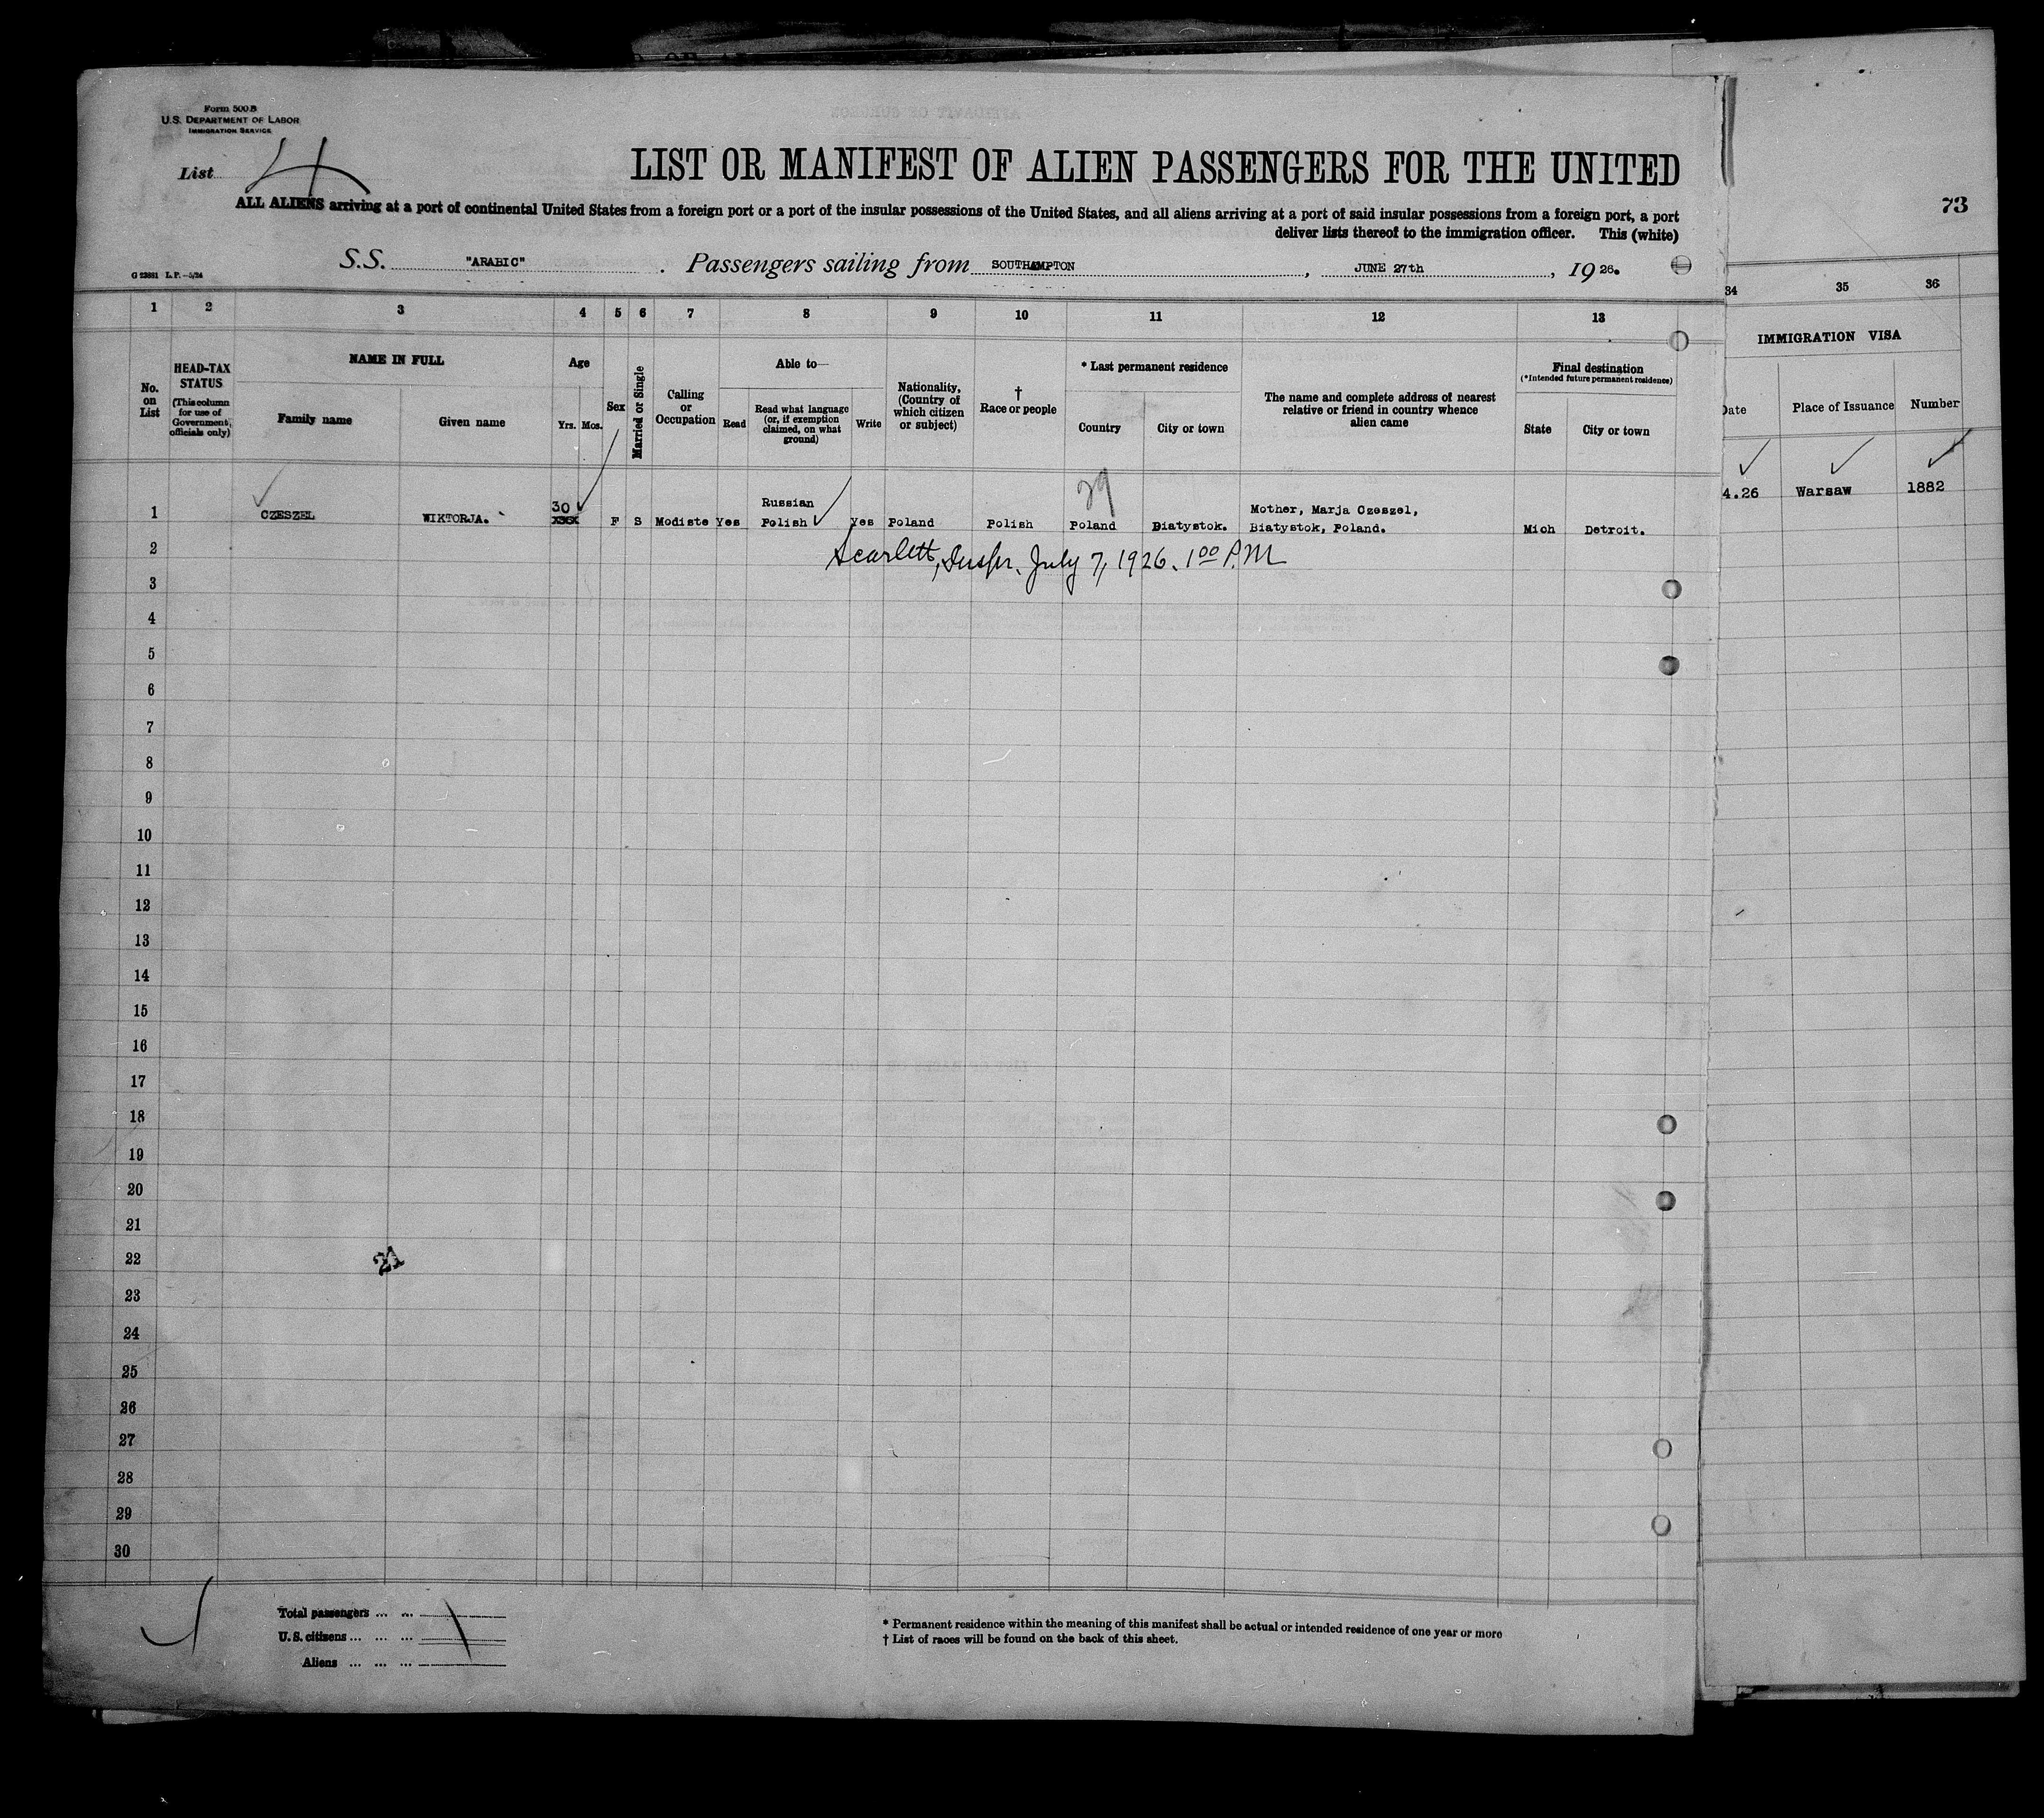 Form 500 B
U.S. DEPARTMENT OF LABOR
IMMIGRATION SERVICE
List 4
LIST OR MANIFEST OF ALIEN PASSENGERS FOR THE UNITED
ALL ALIENS arriving at a port of continental United States from a foreign port or a port of the insular possessions of the United States, and all aliens arriving at a port of said insular possessions from a foreign port, a port
deliver lists thereof to the immigration officer. This (white)
73
G 23881 L. P. –5/24
S.S. "ARABIC" . Passengers sailing from SOUTHAMPTON , JUNE 27th , 1926.
1 2 3 4 5 6 7 8 9 10 11 12 13 34 35 36
No. on List
HEAD-TAX STATUS
(This column for use of Government officials only)
NAME IN FULL
Family name Given name
Age
Yrs. Mos.
Sex
Married or Single
Calling or Occupation
Able to—
Read
Read what language (or, if exemption claimed, on what ground)
Write
Nationality, (Country of which citizen or subject)
† Race or people
* Last permanent residence
Country City or town
The name and complete address of nearest relative or friend in country whence alien came
Final destination
(*Intended future permanent residence)
State City or town
IMMIGRATION VISA
Date Place of Issuance Number
29
30 Russian Mother, Marja Czeszel,
1 CZESZEL WIKTORJA. xxx F S Modiste Yes Polish Yes Poland Polish Poland Biatystok. Biatystok, Poland. Mich Detroit.
4.26 Warsaw 1882
Scarlett, Inspr. July 7, 1926. 1 00 P.M
2
3
4
5
6
7
8
9
10
11
12
13
14
15
16
17
18
19
20
21
22
21
23
24
25
26
27
28
29
30
Total passengers ... ...
U. S. citizens ... ... ...
Aliens ... ... ...
* Permanent residence within the meaning of this manifest shall be actual or intended residence of one year or more
† List of races will be found on the back of this sheet.